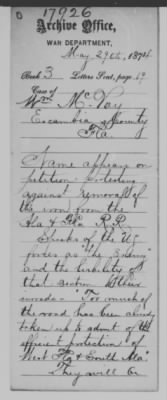 17926
Archive Office,
WAR DEPARTMENT,
May 29th, 1874
Book 3 Letters Sent, page 69
Case of
Wm McVoy
Escambia County
Fla
Name appears on
petition protesting
against removal of
the iron from the
Ala & Fla R.R.
Speaks of the U.S.
forces as the "Enemy"
and the liability of
that section to their
"For much of
the road has been already
taken up to admit of the
efficient protection of
West Fla & South Ala"
They will be